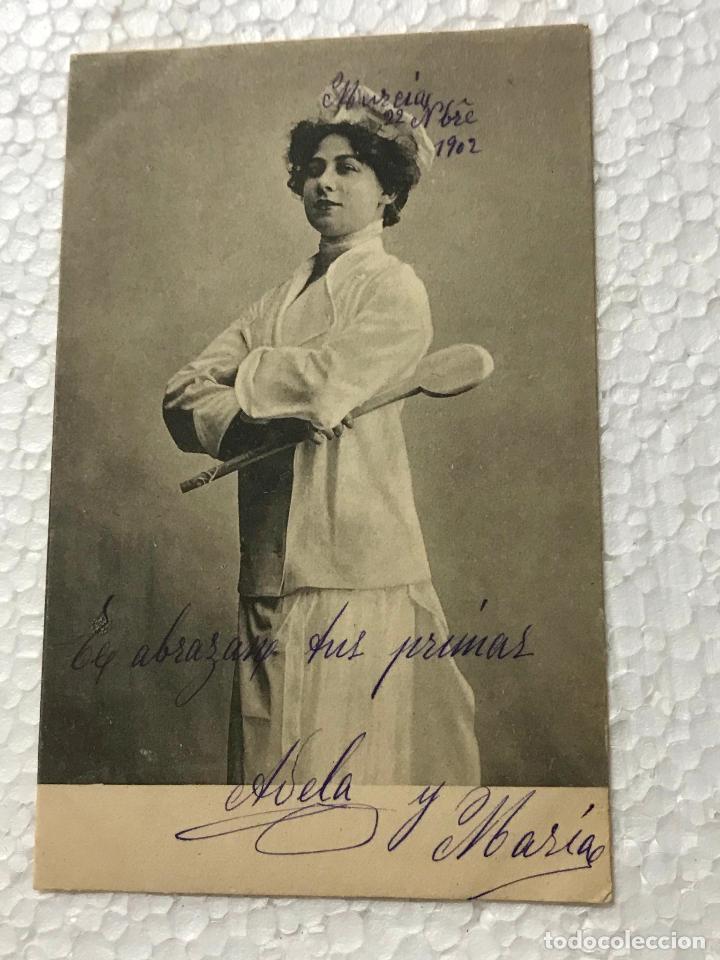 Murcia
22 Nbre
1902
Te abrazan tus primas
Adela y
María
todocoleccion